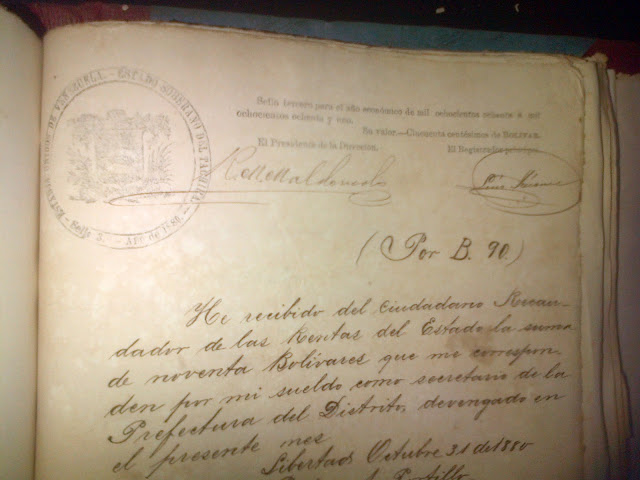 ESTADOS UNIDOS DE VENEZUELA. - ESTADO SOBERANO DEL TACHIRA. -
Sello 3. - Año de 1880
Sello tercero para el año económico de mil ochocientos ochenta a mil
ochocientos ochenta y uno.
Su valor.—Cincuenta centésimos de BOLIVAR.
El Presidente de la Dirección. El Registrador principal.
R. M. Maldonado
(Por B. 90.)
He recibido del Ciudadano Recau-
dador de las Rentas del Estado la suma
de noventa Bolívares que me correspon-
den por mi sueldo como secretario de la
Prefectura del Distrito, devengado en
el presente mes
Libertad Octubre 31 de 1880
Portillo